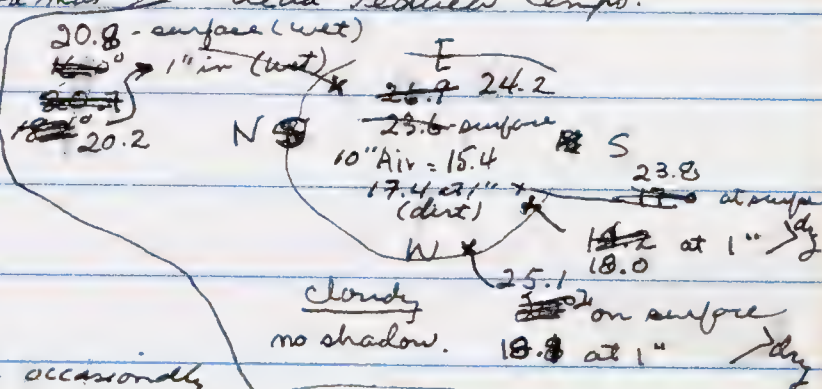 20.8 - surface (wet)
1" in (wet)
20.2
E
24.2
surface
N
S
10" Air = 15.4
17.4 at 1"
(dirt)
W
23.8
at surface
at 1" dry
18.0
25.1
on surface
18.8 at 1" dry
cloudy
no shadow.
occasionally